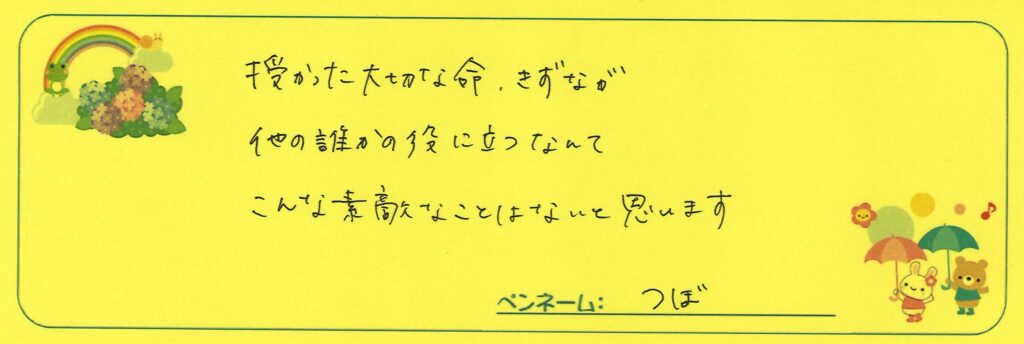 授かった大切な命、きずなが
他の誰かの役に立つなんて
こんな素敵なことはないと思います
ペンネーム: つぼ